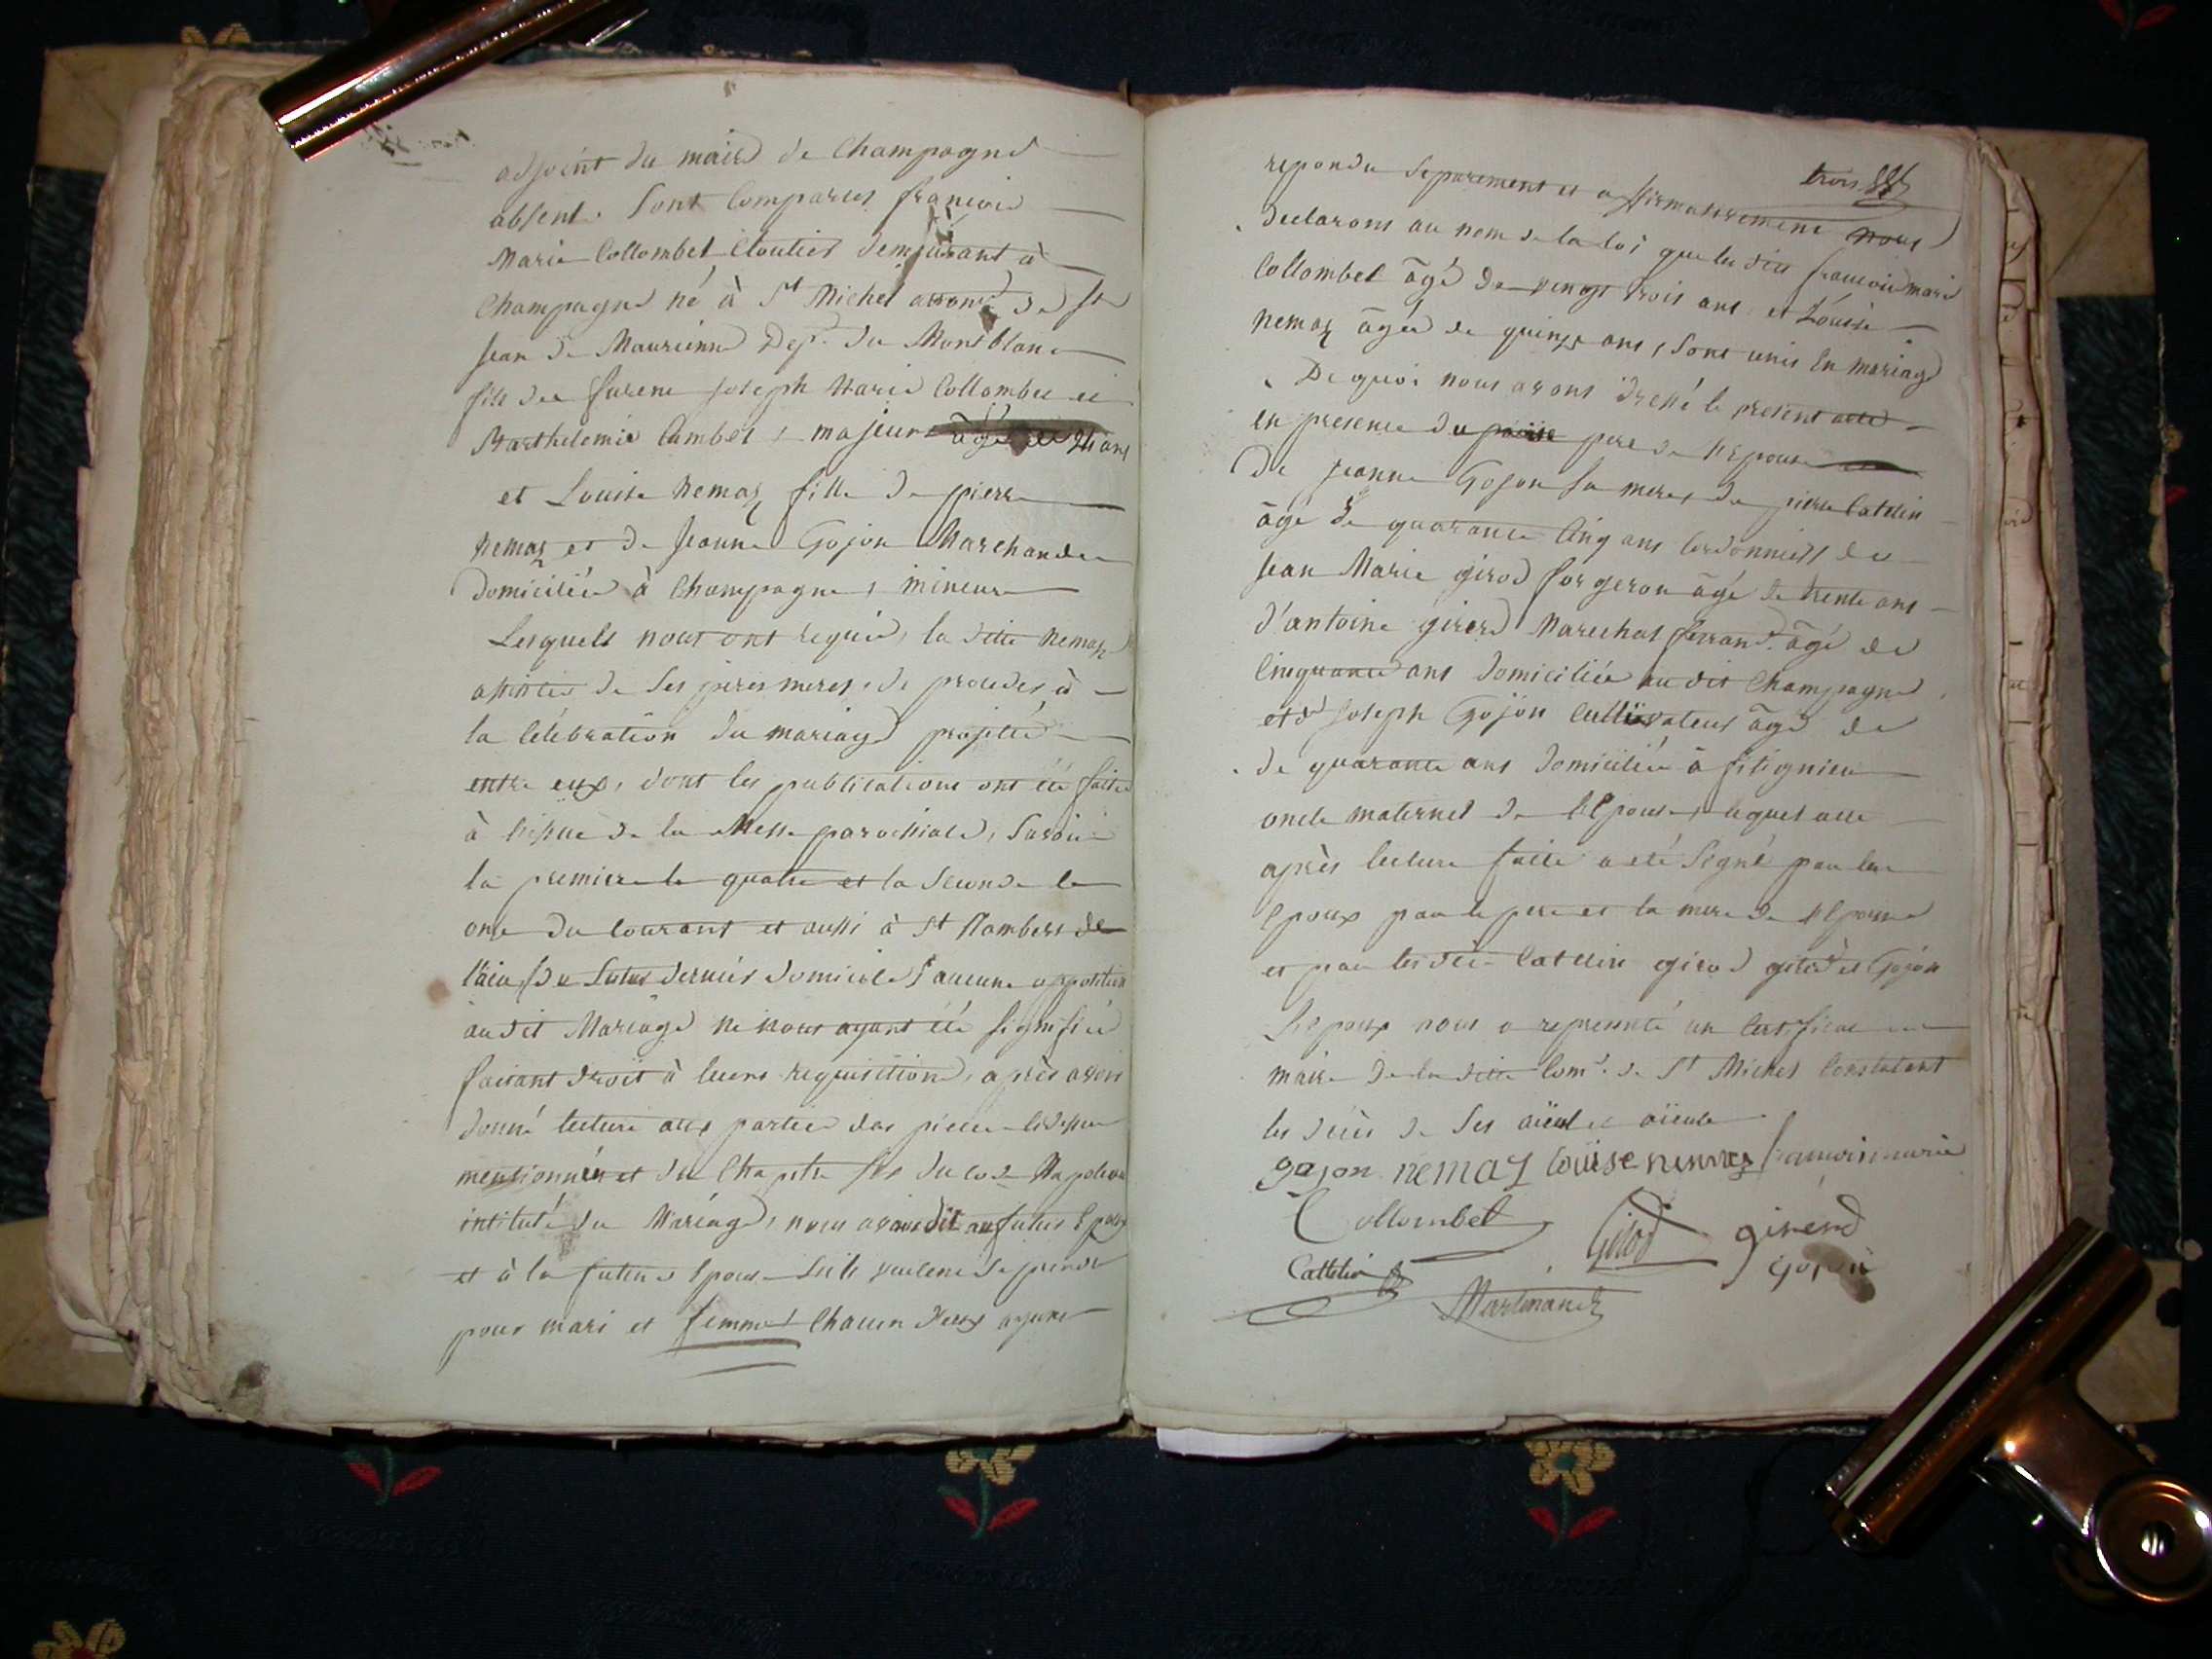 adjoint du maire de Champagne
absent. Sont Comparus francois
Marie Collombet Cloutier demeurant à
Champagne né à St Michel arrond de St
Jean de Maurienne Dep. du Montblanc
fils des furent Joseph Marie Collombet et
Barthelemie Cambet, majeur âgé de ans
et Louise Nemoz fille de pierre
Nemoz et de Jeanne Gojon Marchande
domiciliée à Champagne, mineure
Lesquels nous ont requis, la ditte Nemoz
assistée de ses peres meres, de proceder à
la Célébration du mariage projetté
entre eux, dont les publications ont été faite
à l'issue de la Messe parochiale, Savoir
la premiere le quatre et la Seconde le
onze du Courant et aussi à St Rambert de
l'ain, (du futur dernier domicile) aucune opposition
au dit Mariage ne nous ayant été Signifiée
faisant droit à leurs requisitions, après avoir
donné lecture aux parties des pieces cidessus
mentionnées et du Chapitre six du code Napoleon
intitulé du Mariage, nous avons dit au futur Epoux
et à la future Epouse s'ils veulent se prendre
pour mari et femme Chacun d'eux ayant
trois
repondu Séparement et affirmativement nous
declarons au nom de la loi que les dits francois marie
Collombet âgé de vengt trois ans et Louise
Nemoz âgée de quinze ans, sont unis En mariage
De quoi nous avons dressé le présent acte
en presence du pere de l'Epouse
de Jeanne Gojon sa mere, de pierre Cattelin
âgé de quarante Cinq ans Cordonnier, de
Jean Marie girod forgeron âgé de trente ans
d'antoine girerd Marechal ferrand âgé de
Cinquante ans domiciliés au dit Champagne
et de Joseph Gojon Cultivateur âgé de
de quarante ans domicilié à fitignieu
oncle maternel de l'Epouse, lequel acte
après lecture faite a été Signé par les
Epoux par le pere et la mere de l'Epouse
et par les dits Cattelin girod girerd et Gojon
L'Epoux nous a représenté un Certificat
maire de la ditte Com. de St Michel Constatant
les décès de Ses aïeul et aïeule
gojon nemoz louise nemoz francoi marie
Collombet Girod girerd
Cattelin gojon
Martinand